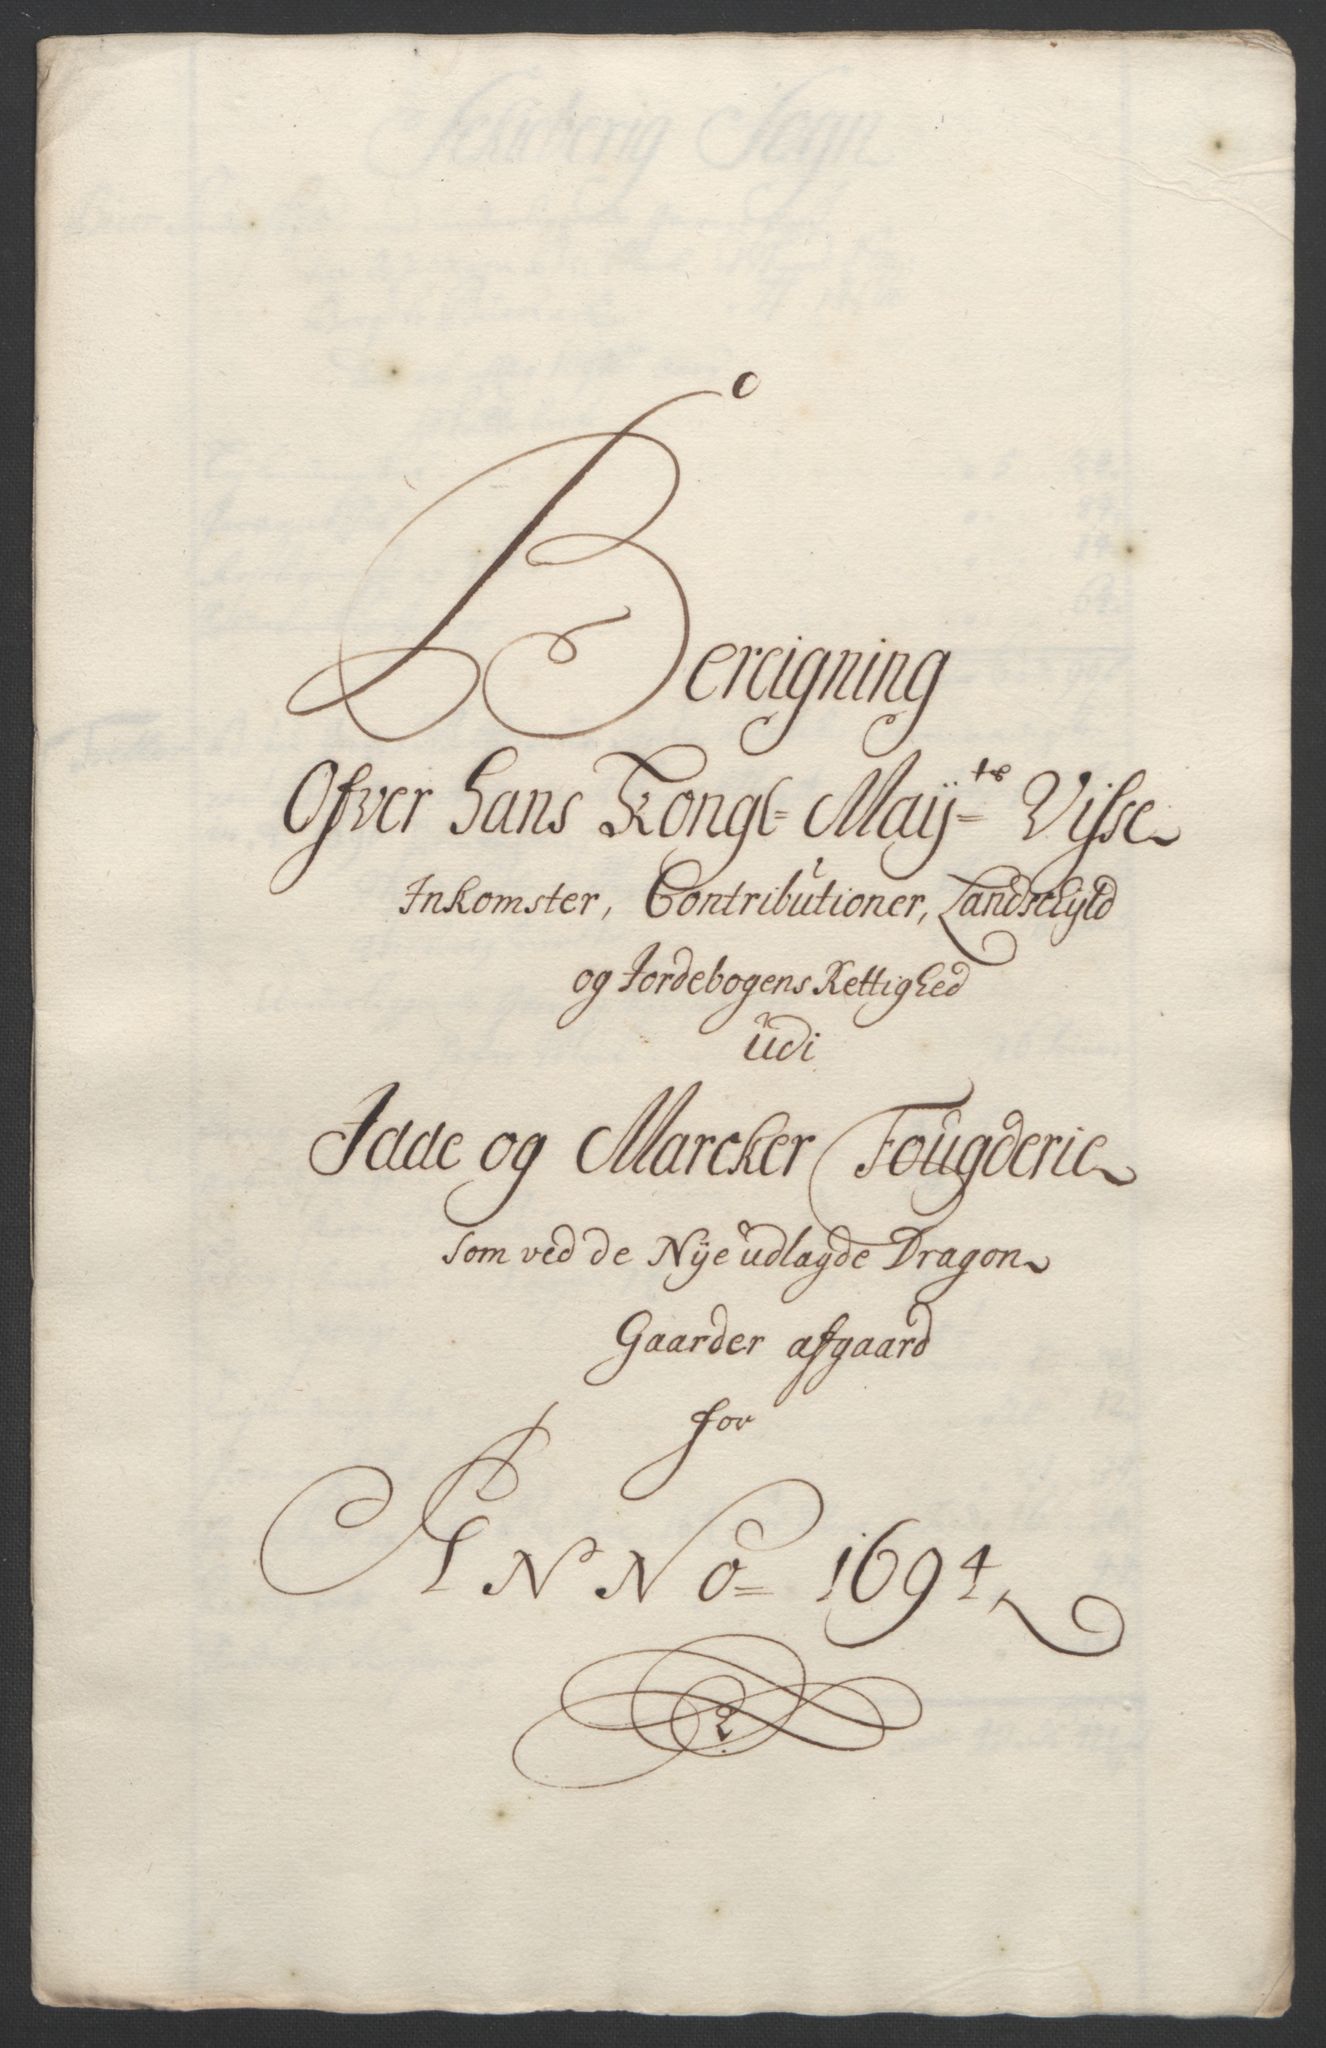 Bereigning
Ofver Hans Kongl= Maÿ=ts Visse
Inkomster, Contributioner, Landschyld
og Jordebogens Rettighed
udi
Idde og Marcker Fougderie
som ved de Nÿe udlagde Dragon
Gaarder afgaard
for
ANNo= 1694